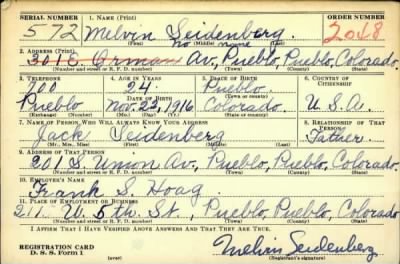 SERIAL NUMBER 1. NAME (Print) ORDER NUMBER
572 Melvin Seidenberg. 2048
no name
(First) (Middle) (Last)
2. ADDRESS (Print)
301 E. Orman Av., Pueblo, Pueblo, Colorado.
(Number and street or R. F. D. number) (Town) (County) (State)
3. TELEPHONE 4. AGE IN YEARS 5. PLACE OF BIRTH 6. COUNTRY OF CITIZENSHIP
700 24. Pueblo
(Town or county)
Pueblo Nov. 22, 1916 Colorado. U.S.A.
7. NAME OF PERSON WHO WILL ALWAYS KNOW YOUR ADDRESS 8. RELATIONSHIP OF THAT PERSON
Jack Seidenberg Father.
(Mr., Mrs., Miss) (First) (Middle) (Last)
9. ADDRESS OF THAT PERSON
201 S. Union Av., Pueblo, Pueblo, Colorado.
(Number and street or R. F. D. number) (Town) (County) (State)
10. EMPLOYER'S NAME
Frank S. Hoag
11. PLACE OF EMPLOYMENT OR BUSINESS
211 W. 5th. St., Pueblo, Pueblo, Colorado
(Number and street or R. F. D. number) (Town) (County) (State)
I AFFIRM THAT I HAVE VERIFIED ABOVE ANSWERS AND THAT THEY ARE TRUE.
REGISTRATION CARD
D. S. S. Form 1 (over)
Melvin Seidenberg
(Registrant's signature)